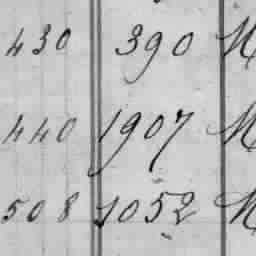 430 390 M
440 1907 M
508 1052 M